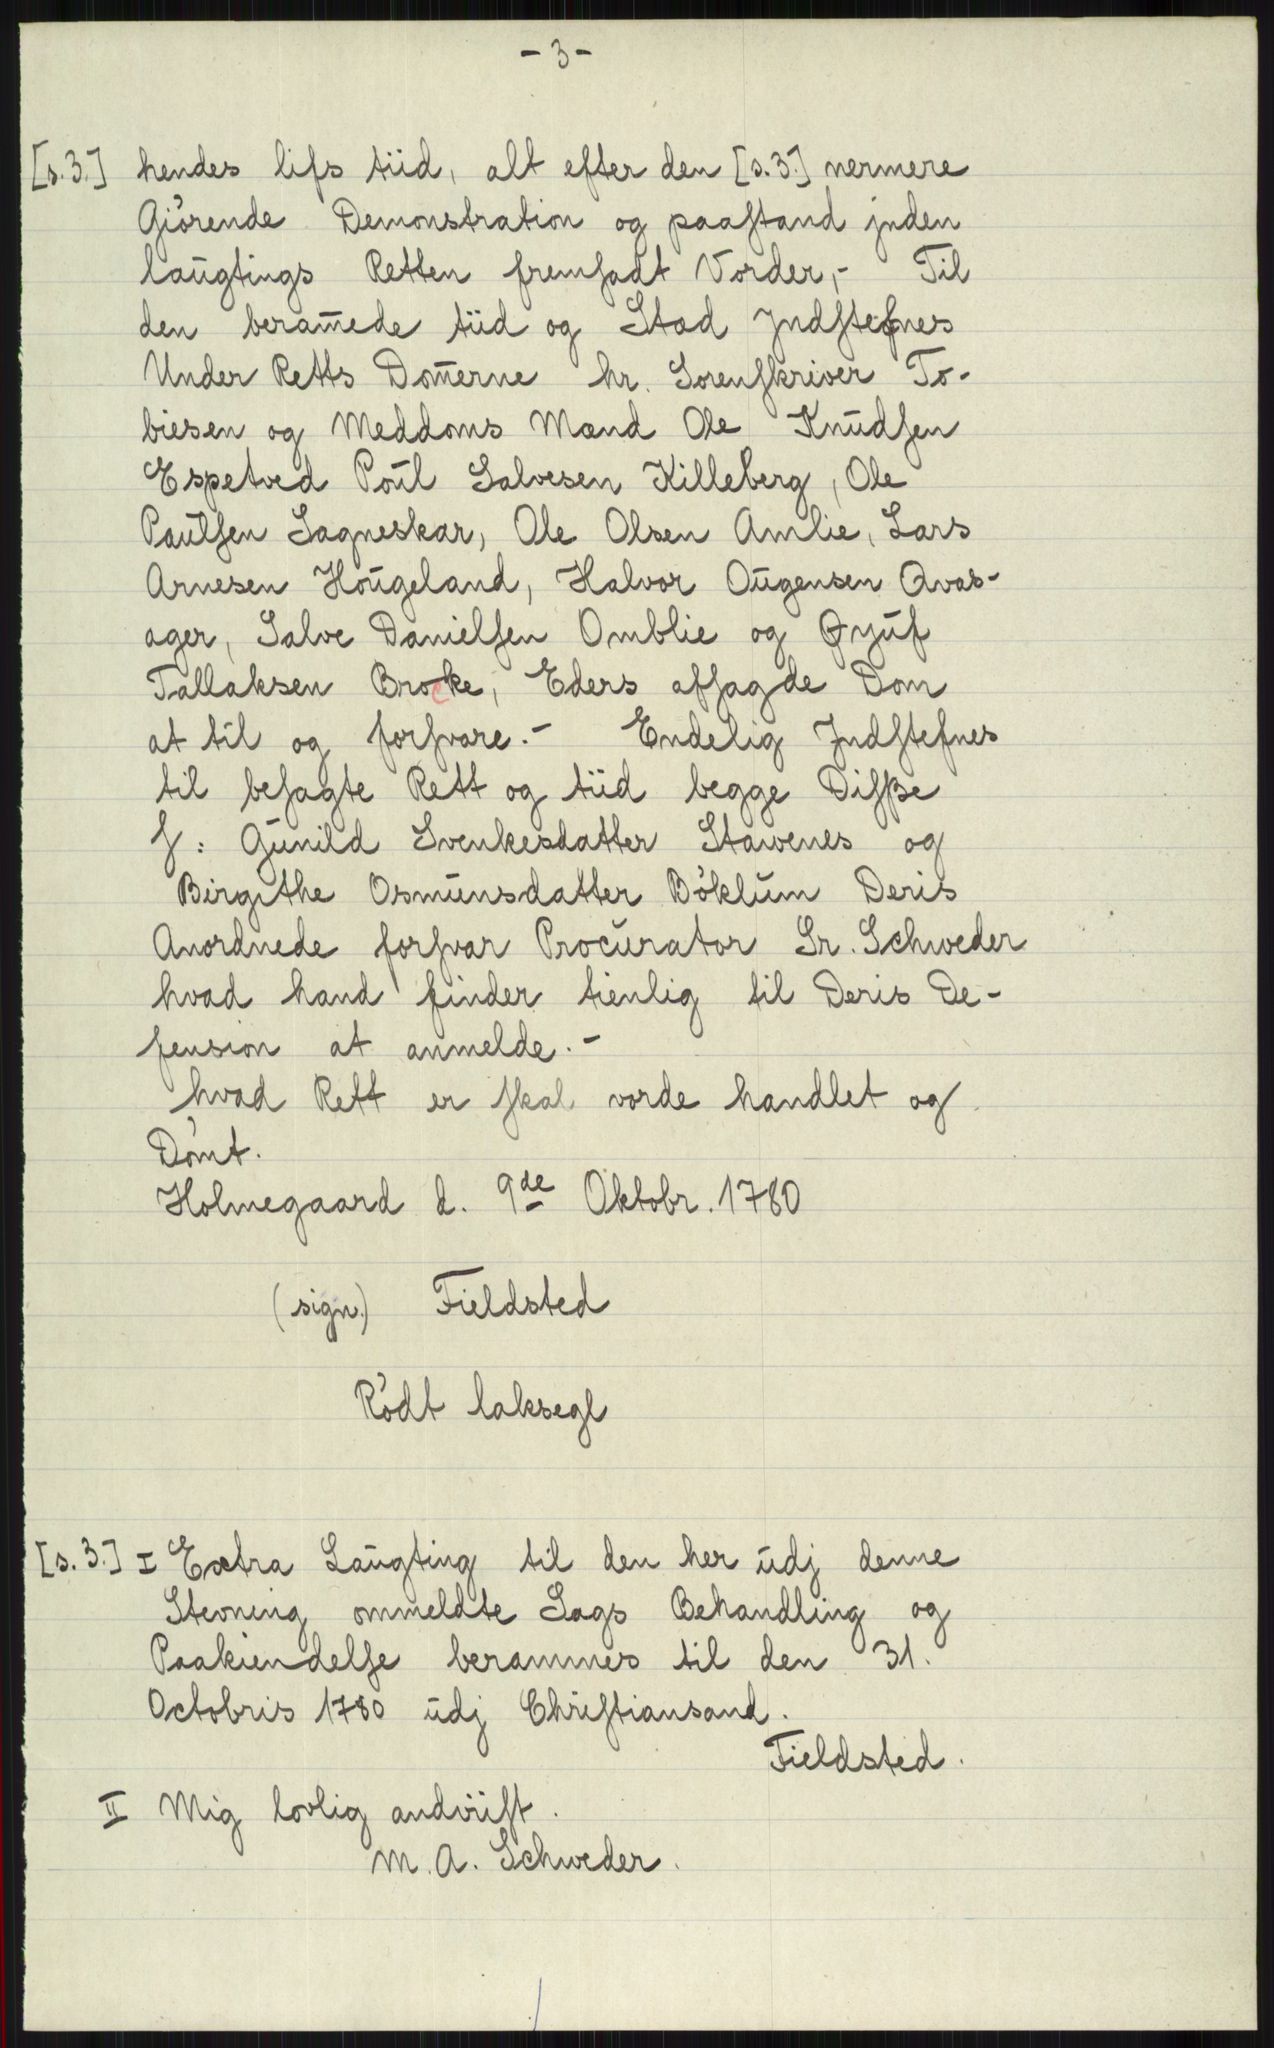 - 3 -
[s.3.] hendes lifs tiid, alt efter den [s.3.] nermere
Giörende Demonstration og paaſtand jnden
laŭgtings Retten fremſadt Vorder,- Til
den beram̅ede tiid og Stad Jndſtefnes
Under Retts Dom̅erne hr. Sorenſkriver To-
biesen og Meddoms Mænd Ole Knŭdſen
Espetved Poŭl Salvesen Killeberg, Ole
Paŭlſen Sagneskar, Ole Olsen Amlie, Lars
Arnesen Hoŭgeland, Halvor Oŭgensen Qvas-
ager, Salve Danielſen Omblie og Øyŭf
Tallaksen Brocke, Eders afſagde Dom
at til og forſvare.- Endelig Jndſtefnes
til beſagte Rett og tiid begge Diſße
ſ: Gŭnild Svenkesdatter Stavenes og
Birgithe Osmŭnsdatter Böklŭm Deris
Anordnede forſvar Procŭrator Sr. Schweder
hvad hand finder tienlig til Deris De-
fension at anmelde.-
hvad Rett er ſkal vorde handlet og
Dömt.
Holmegaard d. 9de Oktobr. 1780
(sign.) Fieldsted
Rödt laksegl
[s.3.] I Extra Laŭgting til den her ŭdj denne
Stevning ommeldte Sags Behandling og
Paakiendelſe berammes til den 31.
Octobris 1780 ŭdj Chriſtiansand.
Fieldsted.
II Mig lovlig andviiſt.
M. A. Schweder.